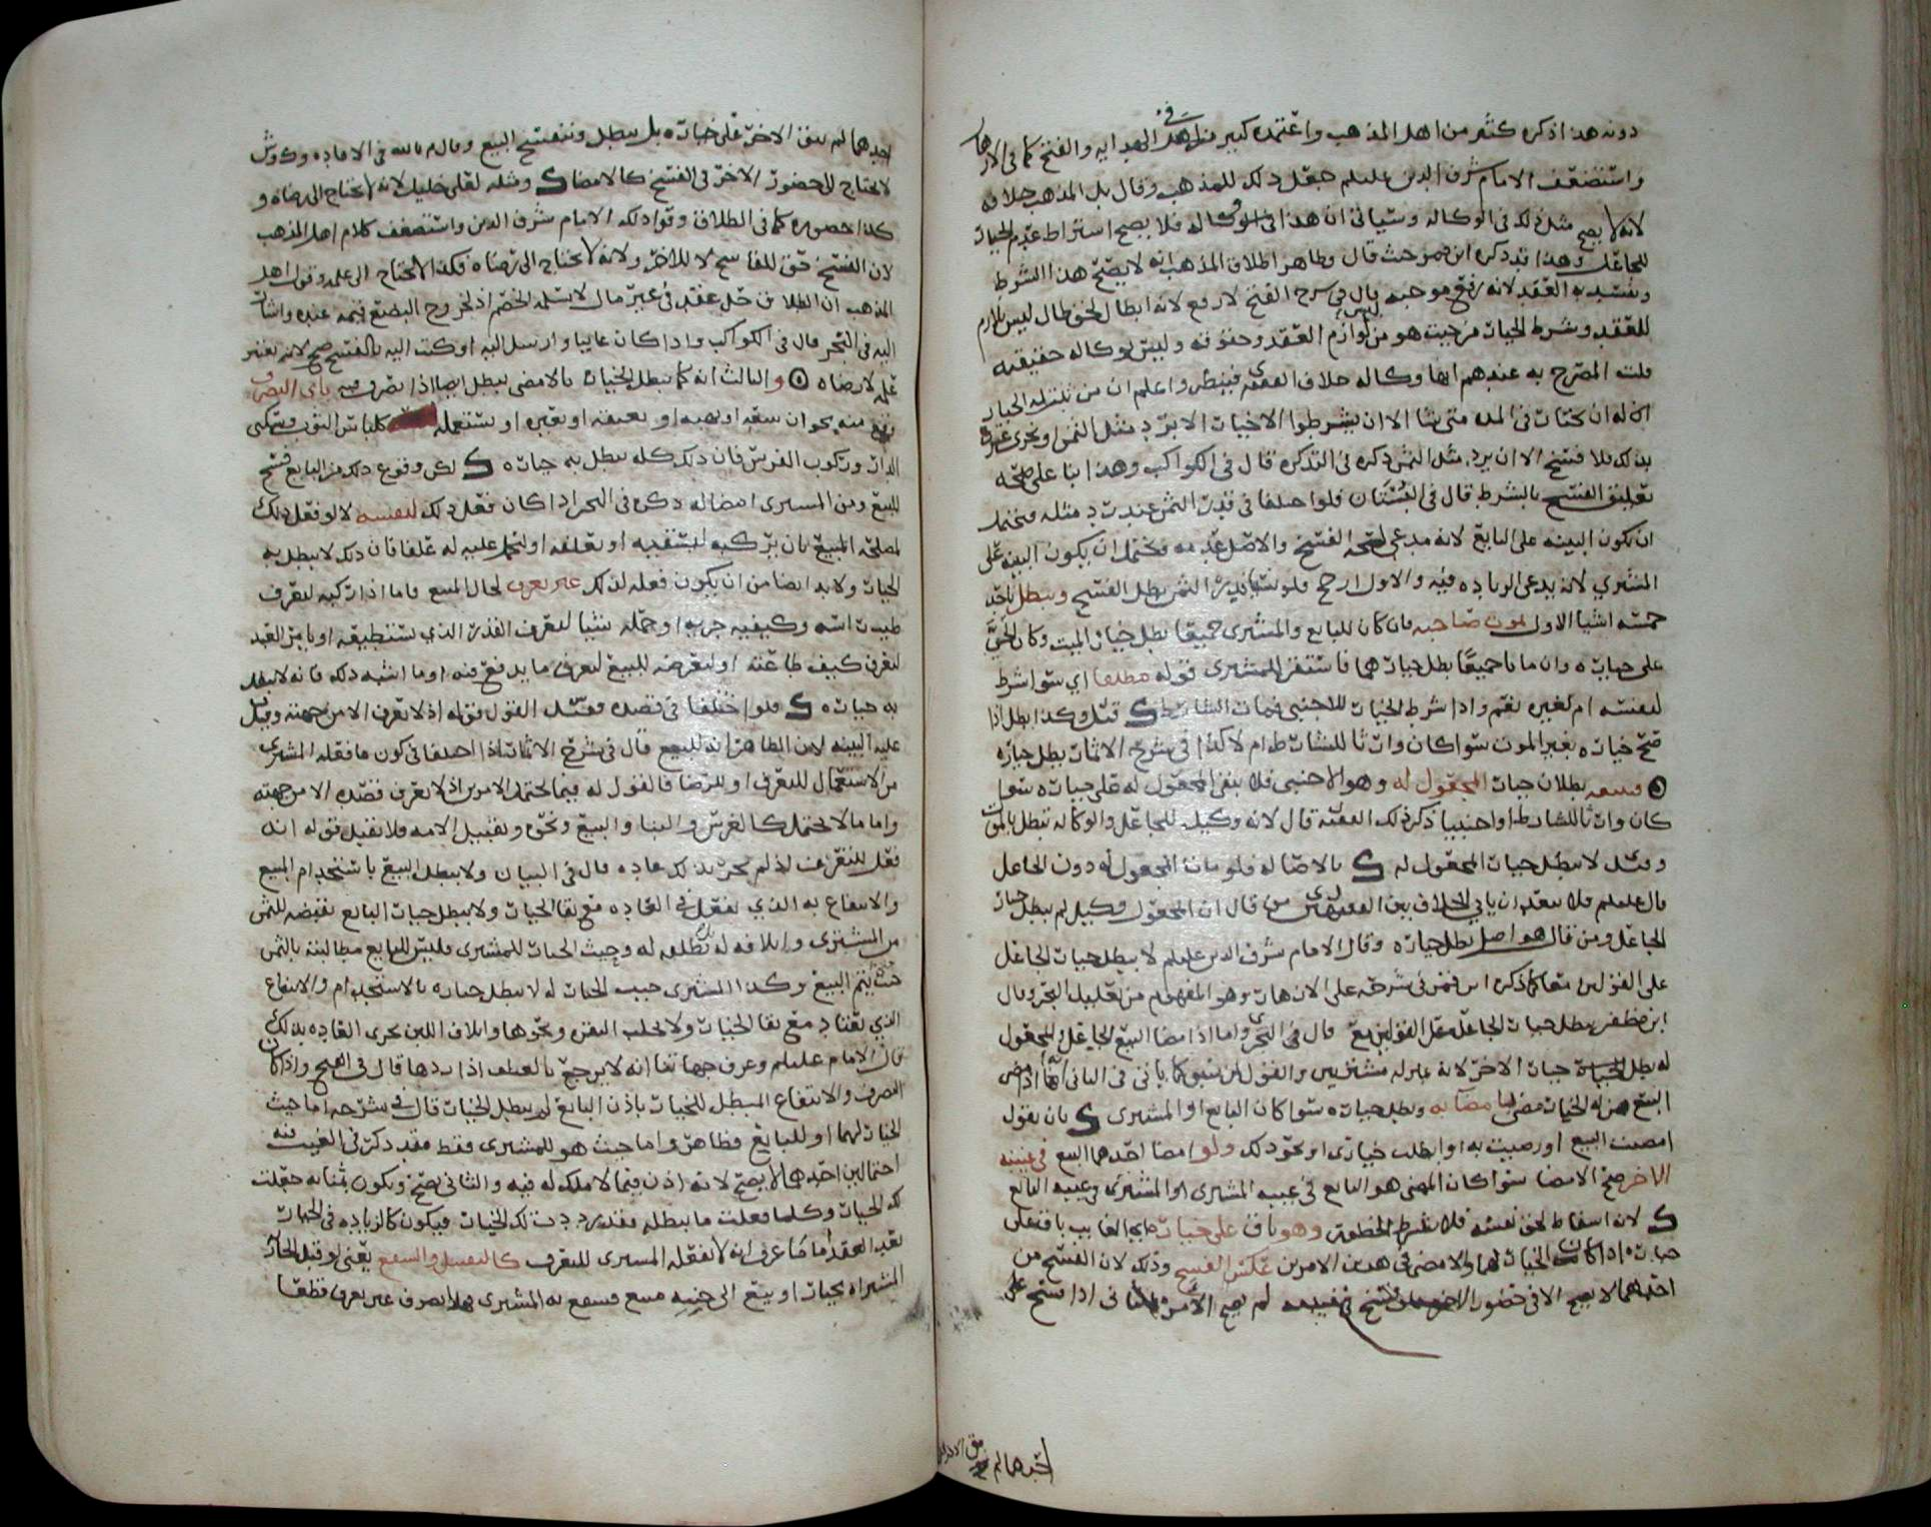 دونه هذا ذكره كثير من اهل المذهب واعتمده كثير في الهدايه والفتح كما في الازهار
واستضعف الامام شرف الدين عليلم جعل ذلك للمذهب وقال بل المذهب خلافه
لانه لا يصح مثل ذلك في الوكاله وسياتي ان هذا في الوكاله فلا يصح اشتراط عدم الخيار
للجاعل وهذا قد ذكره ابن حيث قال وظاهر اطلاق المذهب انه لا يصح هذا الشرط
ويفسد به العقد لانه رفع موجبه قال في شرح الفتح لا رفع لانه ابطال لحق ليس بلازم
للعقد وشرط الخيار من حيث هو ليس من لوازم العقد وحقوقه وليس لوكاله حقيقيه
قلت المصرح به عندهم انها وكاله خلاف الفقيه ى فينظر واعلم ان من ثبت له الخيار
ان له ان يختار في المده متى شا الا ان يشرطوا الا خيار الا برد مثل الثمن او يجرى عرف
بذلك فلا فسخ الا ان يرد مثل الثمن ذكره في التذكره قال في الكواكب وهذا بنا على صحه
تعليق الفسخ بالشرط قال في البستان فلو اختلفا في قدر الثمن عند رد مثله فيحتمل
ان يكون البينه على البايع لانه مدعي لصحه الفسخ والاصل عدمه ويحتمل ان يكون البينه على
المشتري لانه يدعي الزياده فيه والاول ارجح فلو بطل الفسخ ويبطل باحد
خمسه اشيا الاول بموت صاحبه فان كان للبايع والمشترى جميعا بطل خيار الميت وكان الحي
على خياره وان ماتا جميعا بطل خيارهما فاستقر للمشترى قوله مطلقا اي سوا شرط
لنفسه ام لغيره نعم واذا شرط الخيار للاجنبي فمات الشارط قيل وكذا بطل اذا
خياره بغير الموت سوا كان وارثا للشارط ام لا كذا في شرح الاثمار بطل خياره
فيتبعه بطلان خيار المجعول له وهو الاجنبي فلا يبقى المجعول له على خياره سوا
كان وارثا للشارط او اجنبيا ذكر ذلك الفقيه قال لانه وكيل للجاعل والوكاله تبطل بالموت
وقيل لا يبطل خيار المجعول له بالاصاله فلو مات المجعول له دون الجاعل
قال عليلم فلا يبعد ان ياتي الخلاف بين الفقيهين من قال ان المجعول وكيل لم يبطل خيار
الجاعل ومن قال هو اصل بطل خياره وقال الامام شرف الدين عليلم لا يبطل خيار الجاعل
على القولين معا كما ذكره ابن في شرحه على الازهار وهو المفهوم من تعليل البحر وقال
ابن مظفر يبطل خيار الجاعل على القولين مع قال في البحر واما اذا امضا البيع الجاعل او المجعول
له بطل خيار الاخر لانه بمنزله مشتريين والقول لمن سبق كما ياتي في الثاني انه اذا امضى
البيع من له الخيار مضى بامضائه وبطل خياره سوا كان البايع او المشترى بان يقول
امضيت البيع او رضيت به او ابطلت خياري او نحو ذلك ولو امضا احدهما البيع في غيبه
الاخر صح الامضا سوا كان الممضي هو البايع في غيبه المشترى او المشترى في غيبه البايع
لانه اسقاط لحق نفسه فلا يشترط الحضور وهو باق على خياره الغايب باق على
خياره اذا كان الخيار لهما والامضى في هذين الامرين عكس الفسخ وذلك لان الفسخ من
احدهما لا يصح الا في حضور الاخر فان فسخ في غيبته لم يصح الامر الثاني اذا فسخ على
احدهما لم
احدهما لم يبق الاخر على خياره بل يبطل وينفسخ البيع وقال في الافاده
لا يحتاج الى حضور الاخر في الفسخ كالامضا ومثله لعلي خليل لانه لا يحتاج الى رضاه و
كذا حضوره كما في الطلاق وقوا ذلك الامام شرف الدين واستضعف كلام اهل المذهب
لان الفسخ حق للفاسخ لا للاخر ولانه لا يحتاج الى رضاه فكذا لا يحتاج الى علمه وقول اهل
المذهب ان الطلاق حل عقد في غير مال لا نسلمه الخصم اذ لخروج البضع قيمه عنده واشار
اليه في البحر قال في الكواكب واذا كان غايبا وارسل اليه او كتب اليه بالفسخ صح لانه يعتبر
علمه لا رضاه والثالث انه كما يبطل الخيار بالامضى يبطل ايضا اذا تصرف فيه باي التصرف
وقع منه نحو ان يبيعه او يهبه او يعتقه او يغيره او يستعمله كلباس الثوب وسكنى
الدار وركوب الفرس فان ذلك كله يبطل به خياره لكن وقوع ذلك من البايع فسخ
للبيع ومن المشترى امضا له ذكره في البحر اذا كان فعل ذلك لنفسه لا لو فعل ذلك
لمصلحه المبيع بان يركبه ليسقيه او يعلفه او ليحمل عليه له علفا فان ذلك لا يبطل به
الخيار ولا بد ايضا من ان يكون فعله لذلك غير تعرف لحال المبيع فاما اذا ركبه ليعرف
طيب راسه وكيفيه جريه او حمله شيا ليعرف القدر الذي يستطيعه او يامر العبد
ليعرف كيف طاعته او لتعرضه للبيع ليعرف ما يدفع فيه او ما اشبه ذلك فانه لا يبطل
به خياره فلو اختلفا في قصده فقيل القول قوله اذ لا يعرف الا من جهته وقيل
عليه البينه لان الظاهر قال في شرح الاثمار اذا اختلفا في كون ما فعله المشترى
من الاستعمال للتعرف او للرضا فالقول له فيما يحتمل الامرين اذ لا يعرف قصده الا من جهته
واما ما لا يحتمل كالغرس والبنا والبيع ونحوه وتقبيل الامه فلا تقبل قوله انه
فعله للتعرف اذ لم تجر بذلك عاده قال في البيان ولا يبطل البيع باستخدام المبيع
والانتفاع به الذي يفعل في العاده مع بقا الخيار ولا يبطل خيار البايع بقبضه للثمن
من المشترى واتلافه له وحيث الخيار للمشترى فليس للبايع مطالبته بالثمن
حتى يتم البيع وكذا المشترى حيث الخيار له لا يبطل خياره بالاستخدام والانتفاع
الذي يعتاد مع بقا الخيار ولا بحلب البقره ونحوها واتلاف اللبن بجرى العاده بذلك
قال الامام عليلم وعرف جهاتنا انه لا يرجع بالعلف اذا ردها قال في الفتح واذا كان
التصرف والانتفاع المبطل للخيار باذن البايع لم يبطل الخيار قال في شرحه اما حيث
الخيار لهما او للبايع فظاهر واما حيث هو للمشترى فقط فقد ذكر في الغيث فيه
احتمالين احدهما لا يصح لانه اذن فيما لا ملك له فيه والثاني يصح ويكون بمثابه جعلت
لك الخيار وكلما فعلت ما يبطله فقد رددت لك الخيار فيكون كالزياده في الخيار
بعد العقد اما ما عرف انه لا يفعله المشترى للتعرف كالتقبيل والشفع يعني لو قبل الجاريه
المشتراه بخيار او بيع الى جنبه مبيع فشفع به المشترى فهذا تصرف غير تعرف قطعا